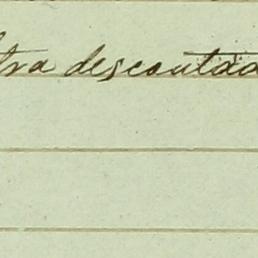 tra descontada